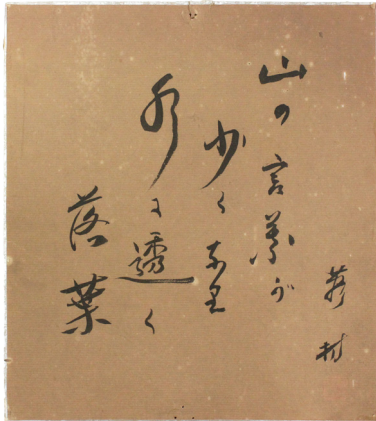 山の言葉が
少くなり
水に透く
落葉
村